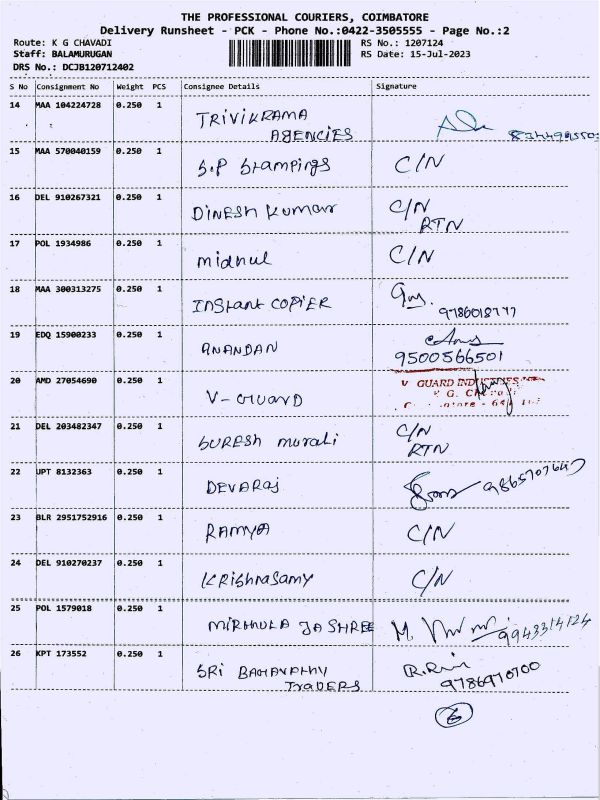 THE PROFESSIONAL COURIERS, COIMBATORE
Delivery Runsheet - PCK - Phone No.:0422-3505555 - Page No.:2
Route: K G CHAVADI RS No.: 1207124
Staff: BALAMURUGAN RS Date: 15-Jul-2023
DRS No.: DCJB120712402
S No Consignment No Weight PCS Consignee Details Signature
14 MAA 104224728 0.250 1 TRIVIKRAMA
AGENCIES
15 MAA 570040159 0.250 1 S.P Stampings C/N
16 DEL 910267321 0.250 1 DINESH Kumar C/N
RTN
17 POL 1934986 0.250 1 midhul C/N
18 MAA 300313275 0.250 1 INStant COPIER
19 EDQ 15900233 0.250 1 ANANDAN
9500566501
20 AMD 27054690 0.250 1 V-GUARD V GUARD INDUSTRIES
21 DEL 203482347 0.250 1 SURESH murali C/N
RTN
22 UPT 8132363 0.250 1 DEVARAJ
23 BLR 2951752916 0.250 1 RAMYA C/N
24 DEL 910270237 0.250 1 KRishnasamy C/N
25 POL 1579018 0.250 1 MIRHULA JA SHREE M. 9943314124
26 KPT 173552 0.250 1 SRI
TradERS 9786970700
6